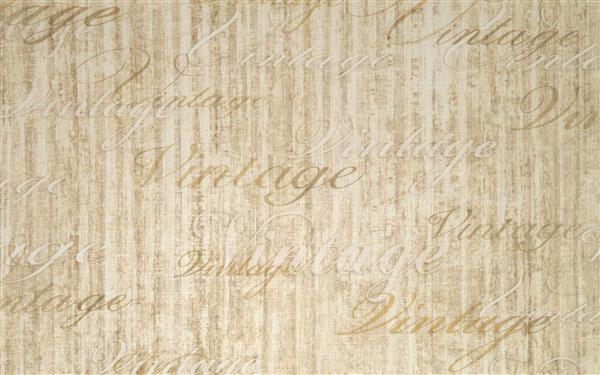 Vintage
Vintage
Vintage
Vintage
Vintage
Vintage
Vintage
Vintage
Vintage
Vintage
Vintage
Vintage
Vintage